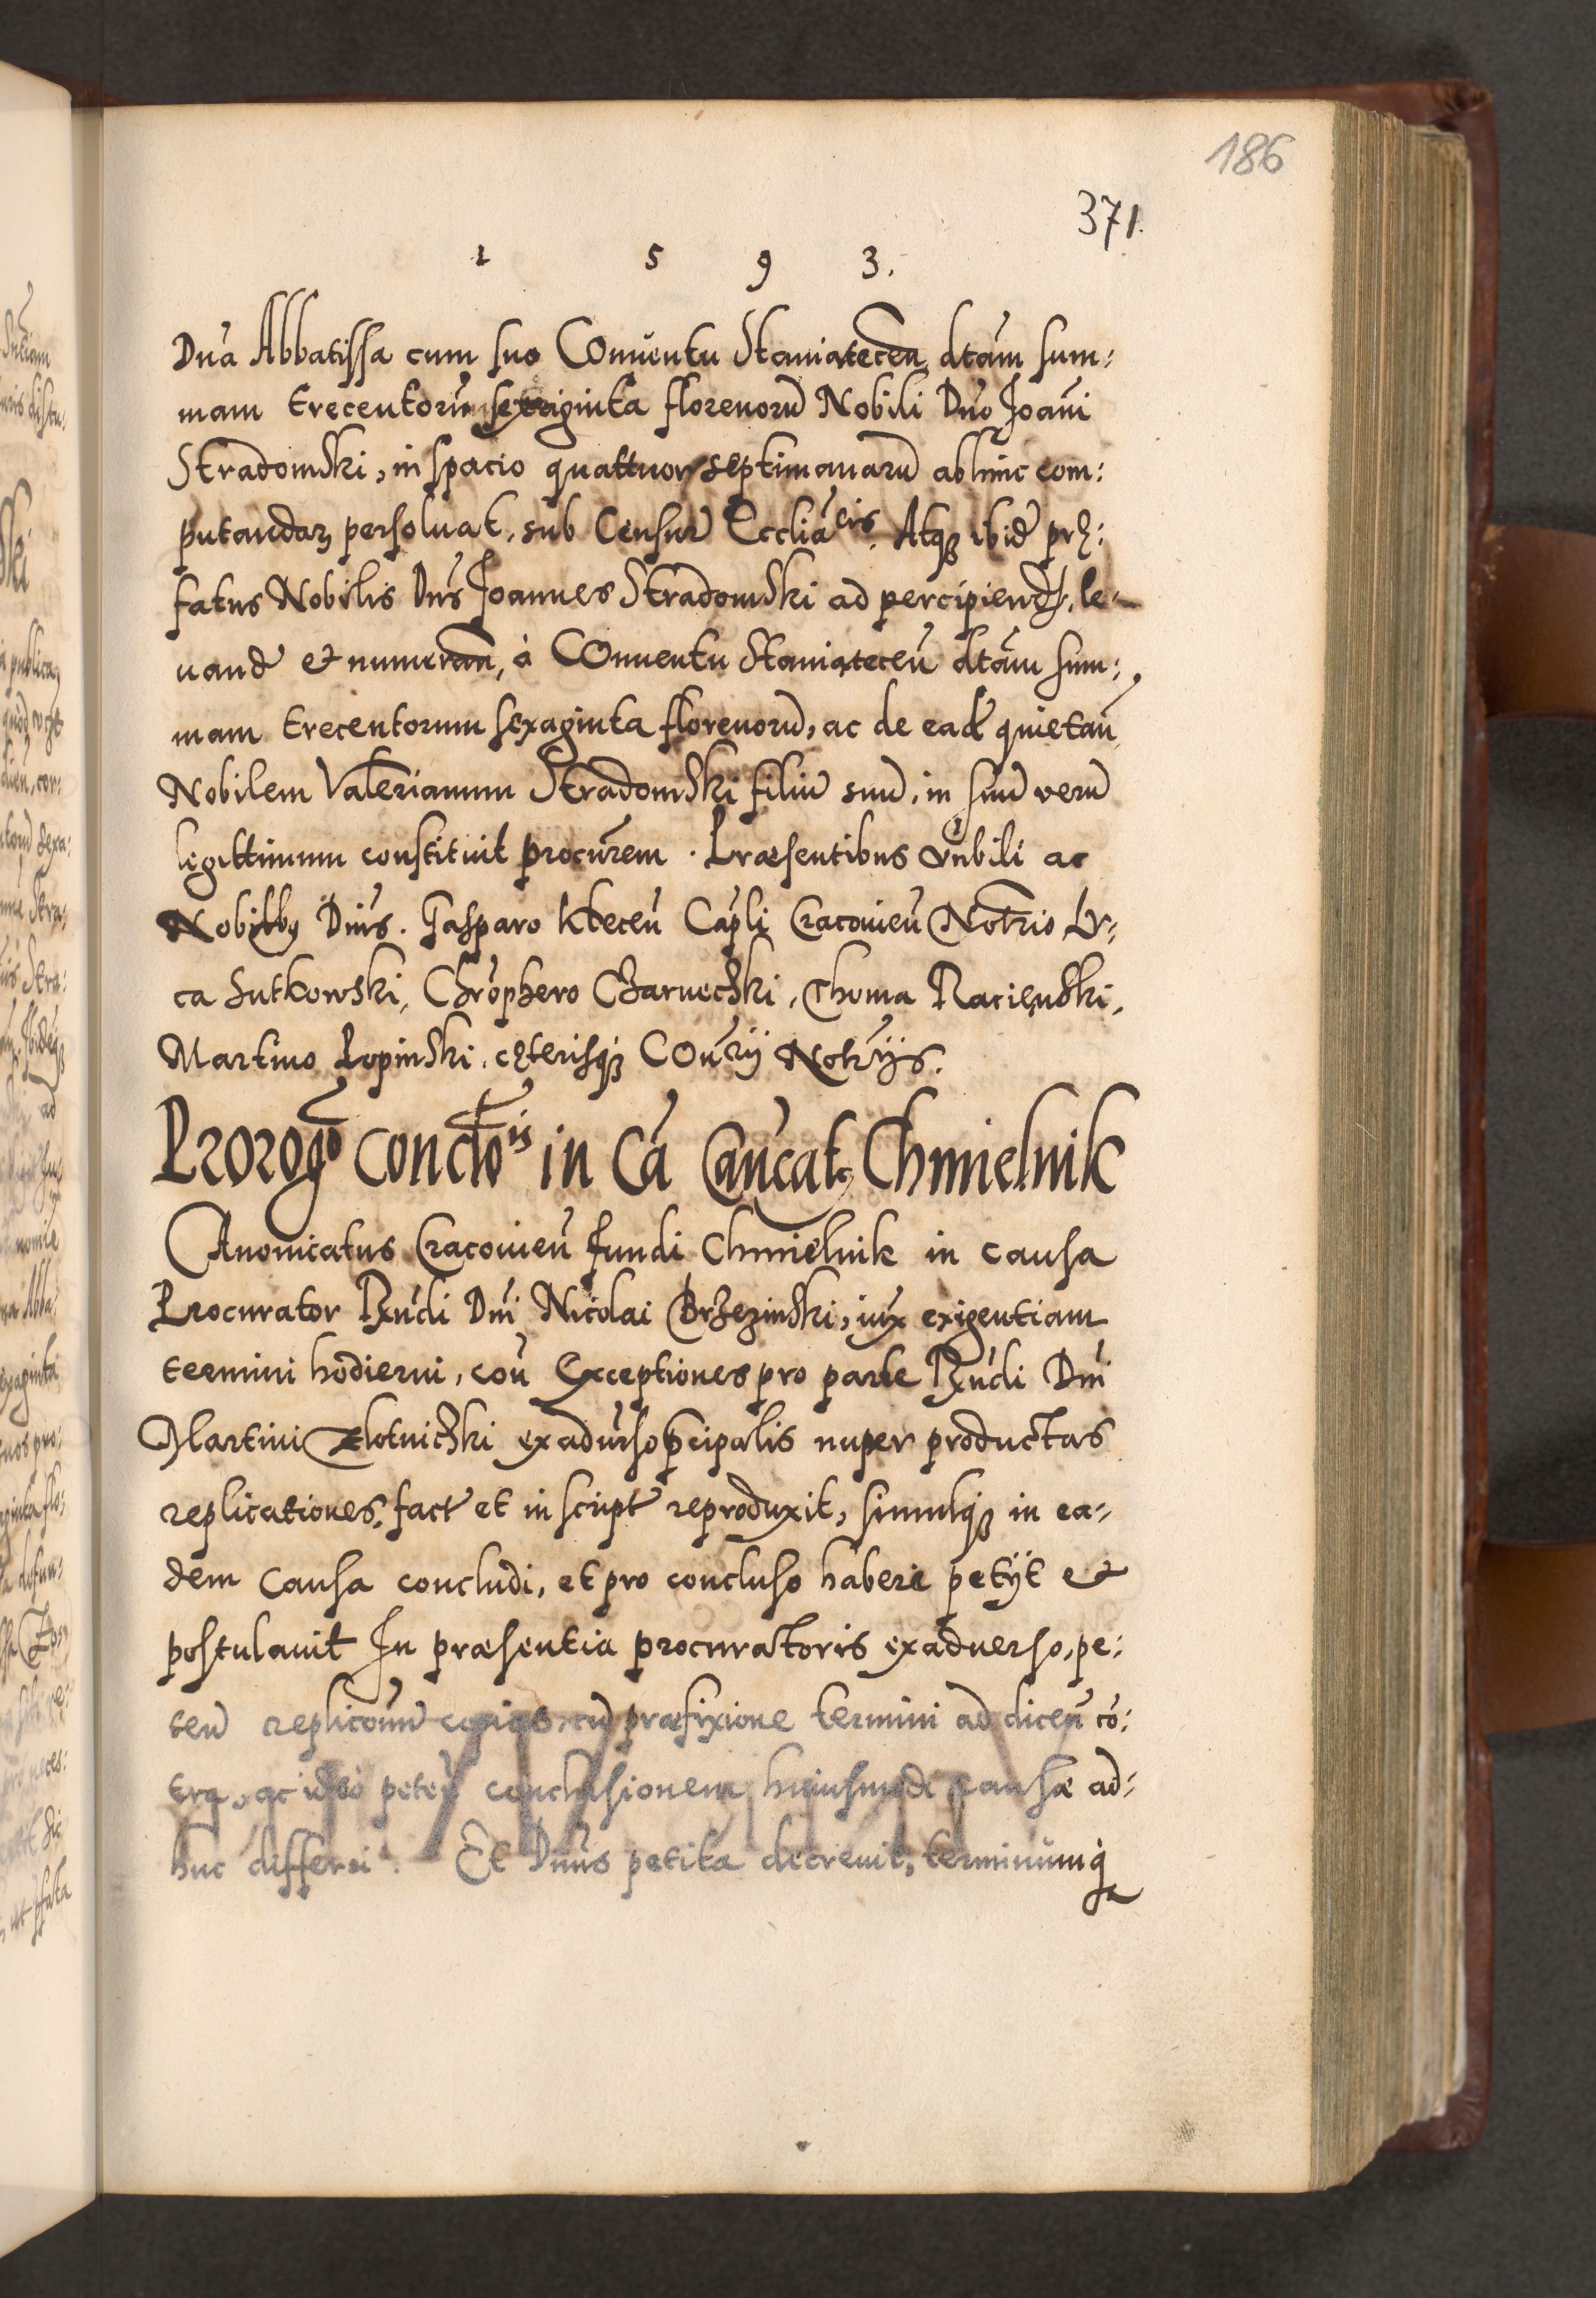 186
371.
1 5 9 3.
Dna Abbatissa cum suo Conuentu Staniatecen dtam sum:
mam trecentorum sexaginta florenorū Nobili Dno Joani
Stradomski, in spacio quattuor septimanarū abhinc com:
putandaꝝ persoluat, sub Censur Eccliacis. Atqꝫ ibid prę:
fatus Nobilis Dns Joannes Stradomski ad percipiend, le-
uand et numeran, à Conuentu Staniatecen dtam sum:
mam trecentorum sexaginta florenorū, ac de ead quietan
Nobilem Valerianum Stradomski filiū suū, in suū verū
legittimum constituit procurem. Præsentibus Vnbili ac
Nobilibꝰ Dnis. Gasparo Ktecen Capli Cracouien Notrio Lu:
ca Sutkowski, Chrophero Czarnecki, Thoma Racięnski,
Martino Lopinski, cęterisqꝫ Conrij Notrijs.
Prorogo conctois in Ca Cancatꝫ Chmielnik
Canonicatus Cracouien fundi Chmielnik in causa
Procurator Rndi Dni Nicolai Brzezinski, iux exigentiam
termini hodierni, con Exceptiones pro parte Rndi Dni
Martini Zlotnicki exadurso pcipalis nuper productas
replicationes, fact et in script reproduxit, simulqꝫ in ea-
dem causa concludi, et pro concluso haberi petijt et
postulauit In præsentia procuratoris exaduerso, pe:
ten replicoum copias, cū præfixione termini ad dicen co:
tra, ac ideo peten conclusionem huiusmodi causæ ad:
huc differri. Et Dnus petita decreuit, terminumq